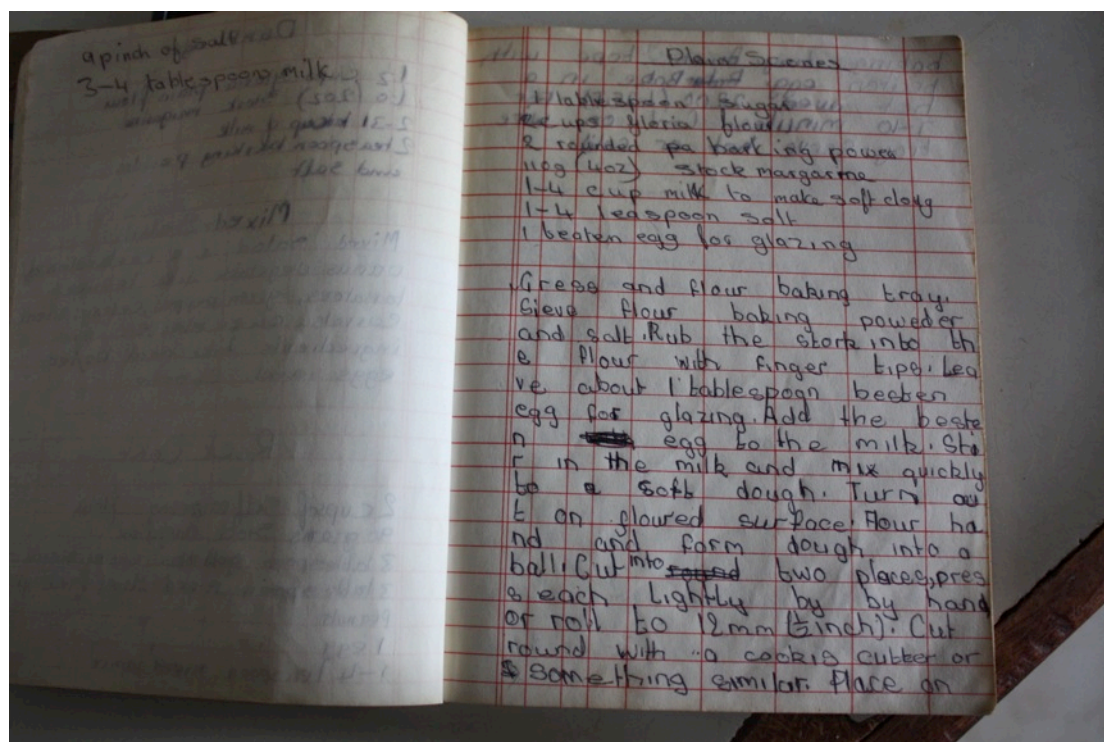 a pinch of salt
3-4 tablespoons milk
1 tablespoon sugar
cups gloria flour
2 rounded barking power
110g (4oz) stock margarine
1-4 cup milk to make soft doug
1-4 teaspoon salt
1 beaten egg for glazing
Grese and flour baking tray.
Sieve flour baking poweder
and salt. Rub the stork into th
e flour with finger tips. Lea
ve about 1 tablespoon beeten
egg for glazing. Add the beate
n egg to the milk. Sta
r in the milk and mix quickly
to a soft dough. Turn ou
t on floured surface. Flour ha
nd and form dough into a
ball. Cut into two places, pres
s each lightly by by hand
or roll to 12mm (½inch). Cut
round with a cookis cutter or
something similar. Place on